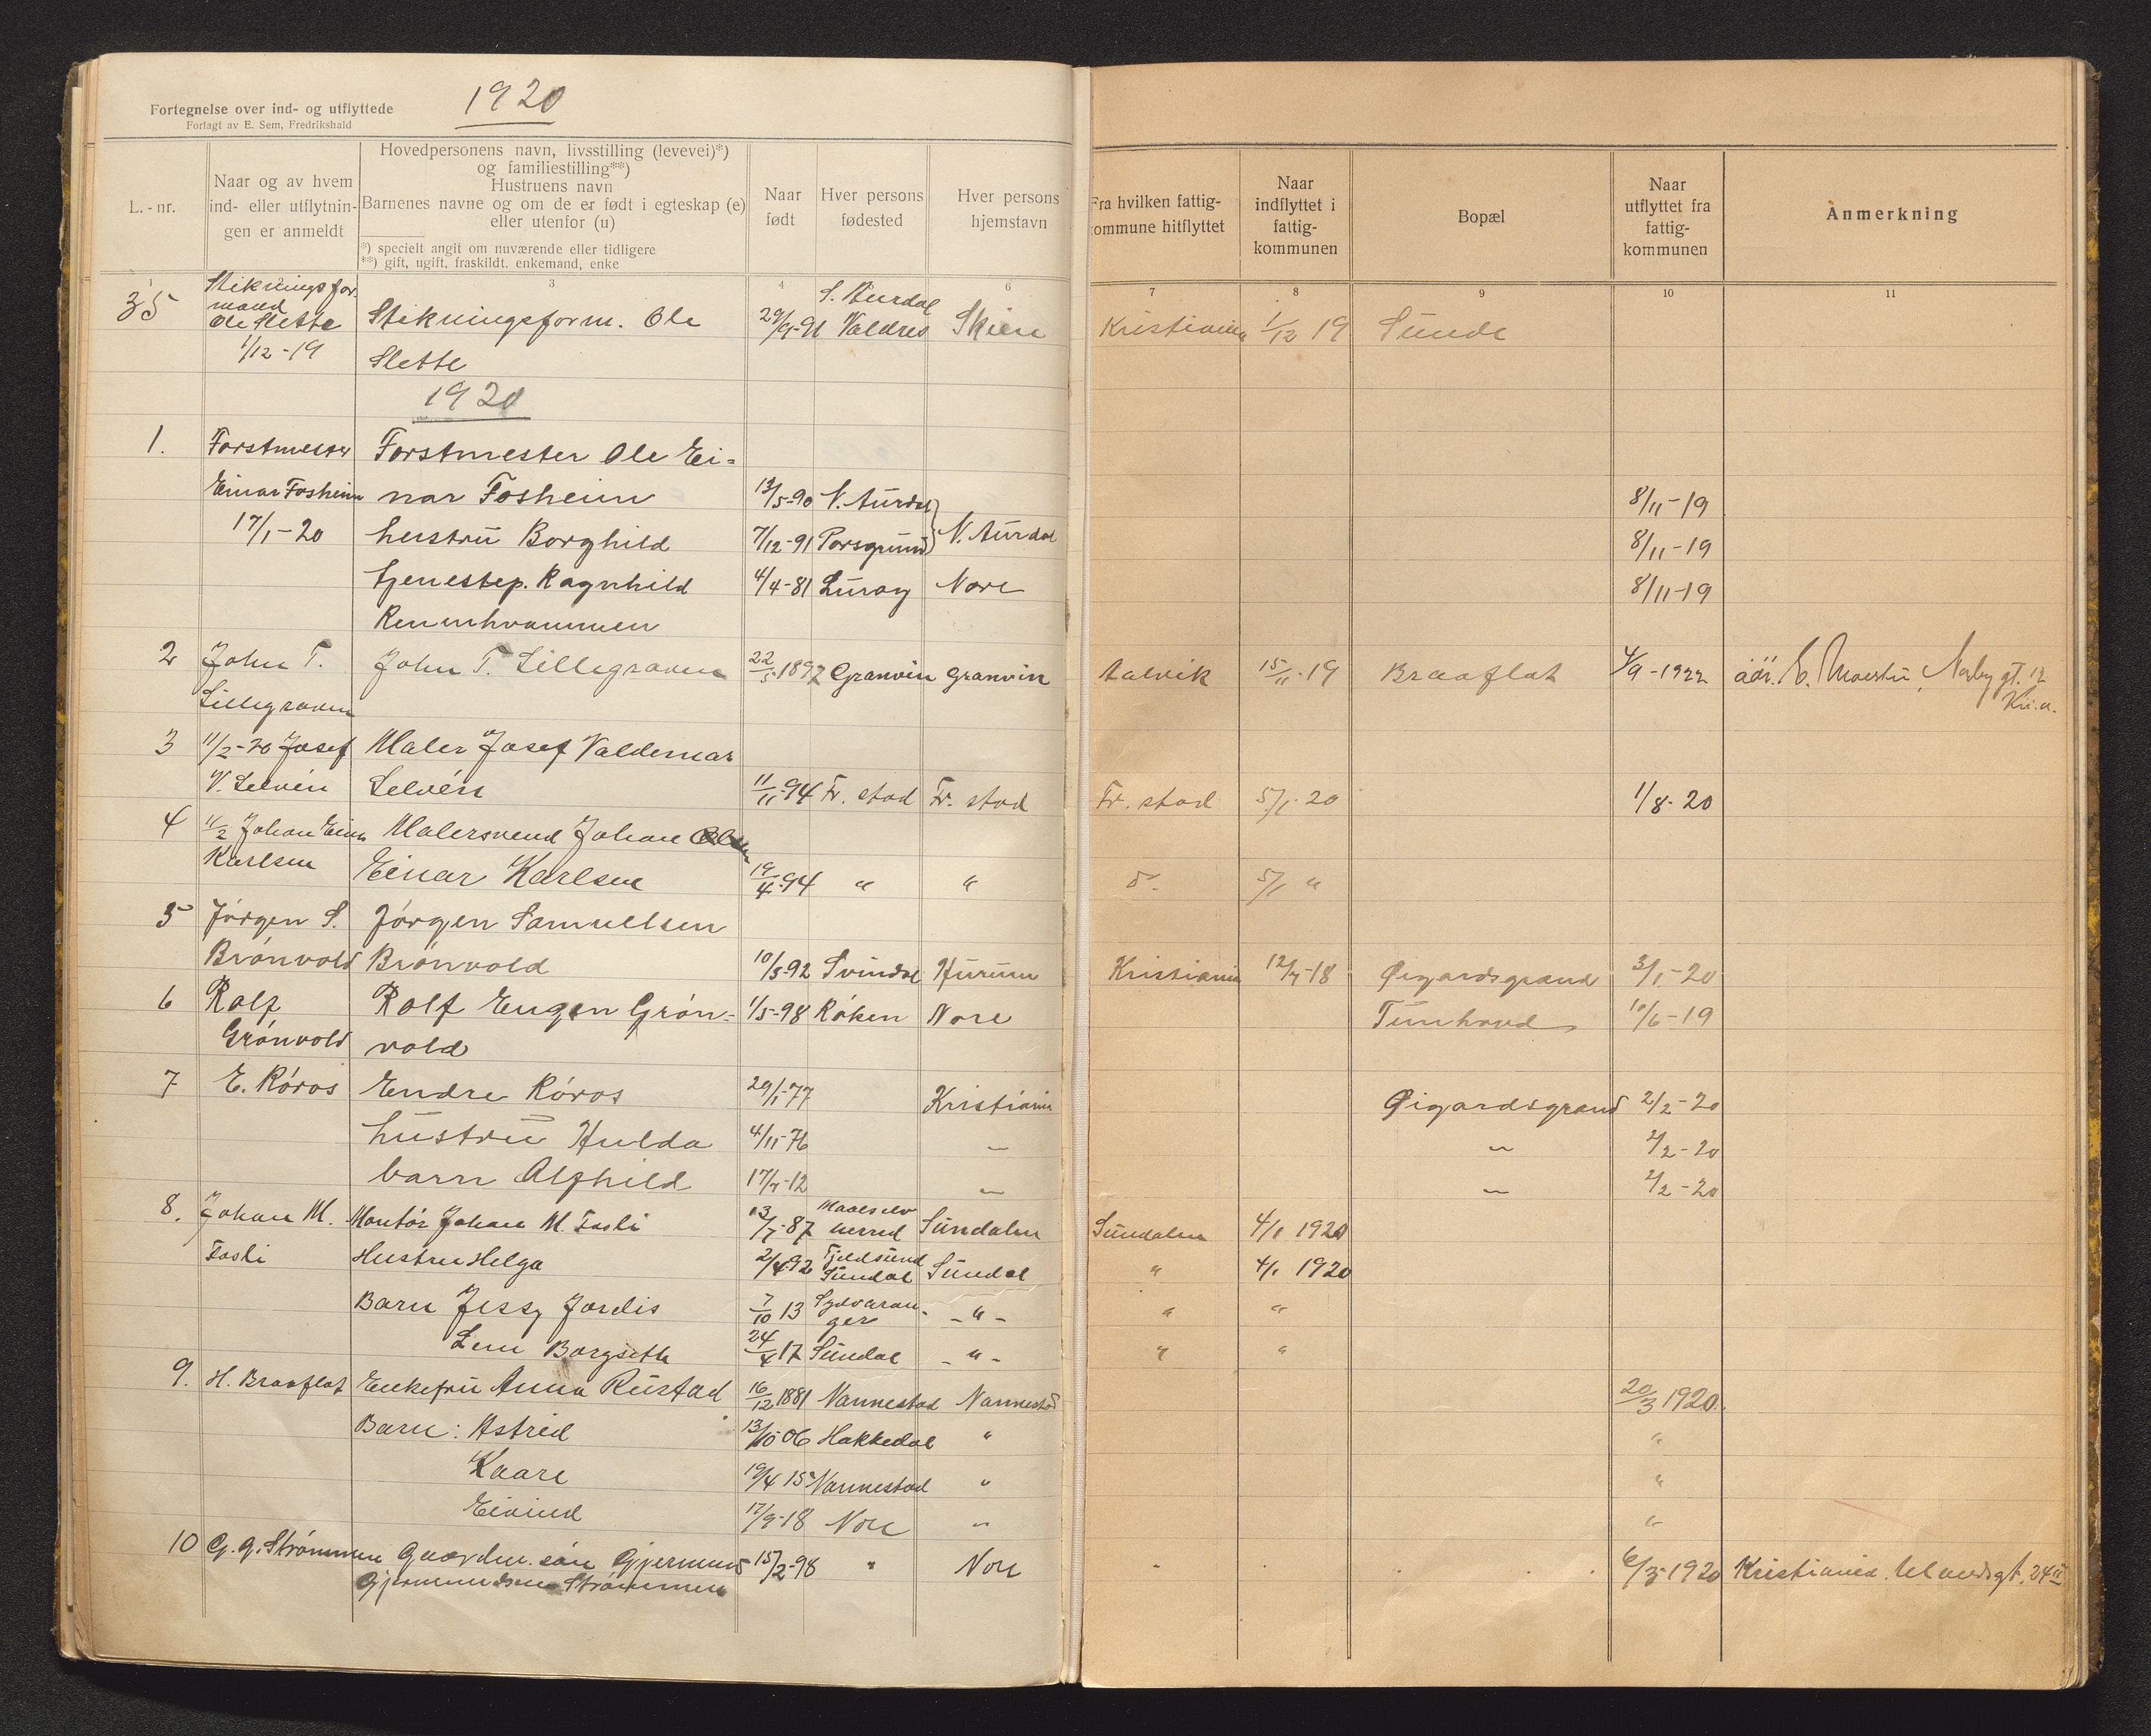 1920
Fortegnelse over ind- og utflyttede
Forlagt av E. Sem, Fredrikshald
L.-nr.
Naar og av hvem
ind- eller utflytnin-
gen er anmeldt
Hovedpersonens navn, livsstilling (levevei)*)
og familiestilling**)
Hustruens navn
Barnenes navne og om de er født i egteskap (e)
eller utenfor (u)
*) specielt angit om nuværende eller tidligere
**) gift, ugift, fraskildt, enkemand, enke
Naar
født
Hver persons
fødested
Hver persons
hjemstavn
Fra hvilken fattig-
kommune hitflyttet
Naar
indflyttet i
fattig-
kommunen
Bopæl
Naar
utflyttet fra
fattig-
kommunen
Anmerkning
1 3 4 6 7 8 9 10 11
Stikningsfor-
mand S. Aurdal
35 Ole Slette Stikningsform. Ole 29/9-91 Valdres Skien Kristiania 1/12 19 Sunde
1/12-19 Slette
1920
1. Forstmester Forstmester Ole Ei-
Einar Fosheim nar Fosheim 13/5-90 N. Aurdal 8/11-19
17/1-20 hustru Borghild 7/12-91 Porsgrund N. Aurdal 8/11-19
tjenestep. Ragnhild 4/4-81 Nore 8/11-19
2 John T. John T. Lillegraven 22/5-1897 Granvin Granvin Aalvik 15/11-19 Braaflat 4/9-1922 adr. E. Nordby gt. 12
Lillegraven Kri.a.
3 11/2-20 Josef Maler Josef Valdemar
V. Selvén Selvén 11/11-94 Fr. stad Fr. stad Fr. stad 5/1-20 1/8-20
4 11/2 Johan Einar Malersvend Johan
Karlsen Einar Karlsen 19/4-94 " " do. 5/1 "
5 Jörgen S. Jörgen Samuelsen
Brönvold Brönvold 10/8-92 Svindal Hurum Kristiania 12/7-18 Øigardsgrand 3/1-20
6 Rolf Rolf Eugen Grön- 1/5-98 Röken Nore Tunhovd 10/6-19
Grönvold vold
7 E. Röros Endre Röros 29/1-77 Kristiania Øigardsgrand 2/2-20
hustru Hulda 4/11-76 " " 2/2-20
barn Alfhild 17/7-12 " " 2/2-20
8. Johan M. Montör Johan M. Foshi 13/7-87 Maalselv herred Sundalen Sundalen 4/1 1920
Foshi Hustru Helga 2/4-92 Fjeldsund Sundal Sundal " 4/1 1920
Barn Jessy Jordis 7/10 13 Sydvaran- ger - " - " "
Borgseth 24/4 17 Sundal - " - " "
9. H. Braaflat Enkefru Anna Rustad 16/12 1881 Nannestad Nannestad 20/3 1920.
Barn: Astrid 13/10 06 Hakkedal " "
Kaare 19/4 15 Nannestad " "
Eivind 17/9-18 Nore " "
10 G. G. Strömmen Gaardm. sön Gjermund 15/2-98 " Nore 6/3-1920 Kristiania. Uelandsgt. 24 II
Gjermundsen Strömmen